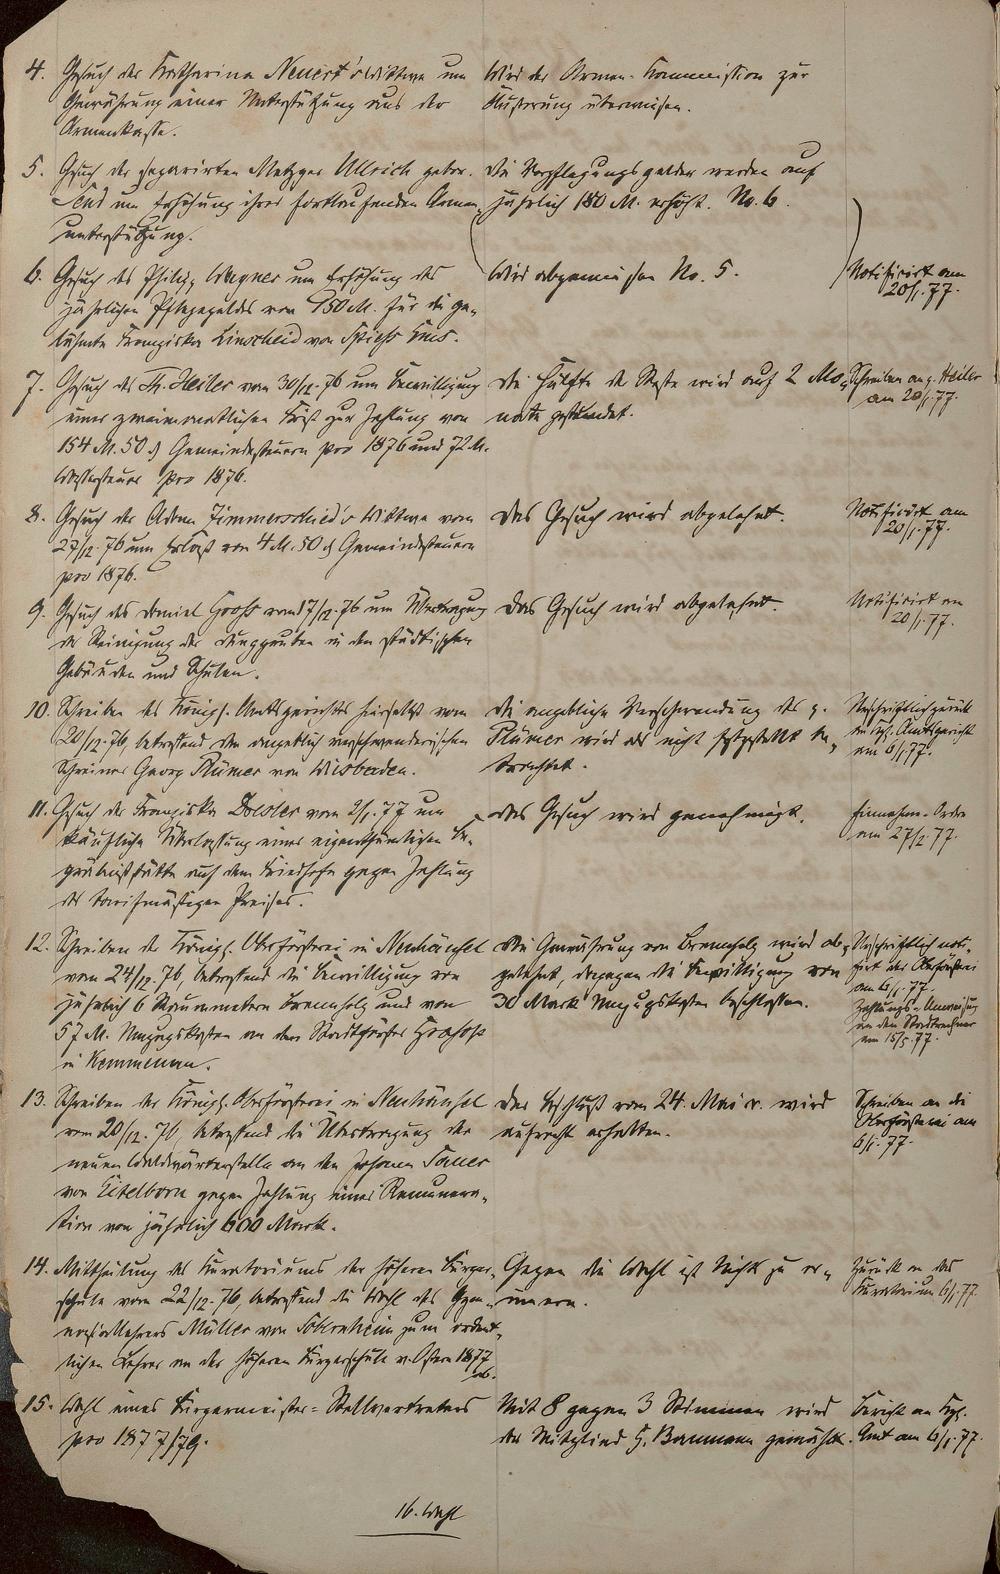 4. Gesuch der Katharina Neuert's Wittwe um
Gewährung einer Unterstützung aus der
Armenkasse.
Wird der Armen-Kommission zur
Äußerung überwiesen.
5. Gesuch der separirten Metzger Ullrich gebor.
um Erhöhung ihrer fortlaufenden Armen-
unterstützung.
Die Verpflegungsgelder werden auf
jährlich 180 M. erhöht. No. 6.
6. Gesuch des Philipp Wagner um Erhöhung des
jährlichen Pflegegeldes von 150 M. für die ge-
lähmte Franziska Linscheid von Spieß Ems.
Wird abgewiesen No. 5.
Notificirt am
20/1.77.
7. Gesuch des Th. Heiler vom 30/12.76 um Bewilligung
einer zweimonatlichen Frist zur Zahlung von
154 M. 50 Gemeindesteuern pro 1876 und 72 M.
Wassersteuer pro 1876.
Die Hälfte der Reste wird auf 2 Mo-
nate gestundet.
Schreiben an g. Heiler
am 20/1.77.
8. Gesuch der Adam Zimmerschied's Wittwe vom
27/12.76 um Erlaß von 4 M. 50 Gemeindesteuern
pro 1876.
Das Gesuch wird abgelehnt.
Notificirt am
20/1.77.
9. Gesuch des Daniel Groß vom 17/12.76 um Übertragung
der Reinigung der Dunggruben in den städtischen
Gebäuden und Schulen.
Das Gesuch wird abgelehnt.
Notificirt am
20/1.77.
10. Schreiben des Königl. Amtsgerichts hierselbst vom
20/12.76, betreffend den angeblich verschwenderischen
Schreiner Georg Plümer von Wiesbaden.
Die angebliche Verschwendung des g.
Plümer wird als nicht festgestellt be-
trachtet.
Urschriftlich zurück
an Kgl. Amtsgericht
am 6/1.77.
11. Gesuch der Franziska Doisler vom 2/1.77 um
käufliche Überlassung einer eigenthümlichen Be-
gräbnißstätte auf dem Friedhofe gegen Zahlung
des tarifmäßigen Preises.
Das Gesuch wird genehmigt.
Einnahme-Ordre
am 27/2.77.
12. Schreiben der Königl. Oberförsterei in Neuhäusel
vom 24/12.76, betreffend die Bewilligung von
jährlich 6 Raummetern Brennholz und von
57 M. Umzugskosten an den Stadtförster
in Kemmenau.
Die Gewährung von Brennholz wird ab-
gelehnt, dagegen die Bewilligung von
30 Mark Umzugskosten beschlossen.
Urschriftlich noti-
ficirt der Oberförsterei
am 6/1.77.
Zahlungs-Anweisung
an den Stadtrechner
am 15/5.77.
13. Schreiben der Königl. Oberförsterei in Neuhäusel
vom 20/12.76, betreffend die Übertragung der
neuen Waldwärterstelle an den Johann Sauer
von Eitelborn gegen Zahlung einer Remunera-
tion von jährlich 600 Mark.
Der Beschluß vom 24. Mai v. wird
aufrecht erhalten.
Schreiben an die
Oberförsterei am
6/1.77.
14. Mittheilung des Kuratoriums der höheren Bürger-
schule vom 22/12.76, betreffend die Wahl des Gym-
nasiallehrers Müller von Sobernheim zum ordent-
lichen Lehrer an der höheren Bürgerschule v. Ostern 1877
ab.
Gegen die Wahl ist Nichts zu er-
innern.
Zurück an das
Kuratorium 6/1.77.
15. Wahl eines Bürgermeister-Stellvertreters
pro 1877/79.
Mit 8 gegen 3 Stimmen wird
das Mitglied H. Baumann gewählt.
Bericht an Kgl.
Amt am 6/1.77.
16. Wahl